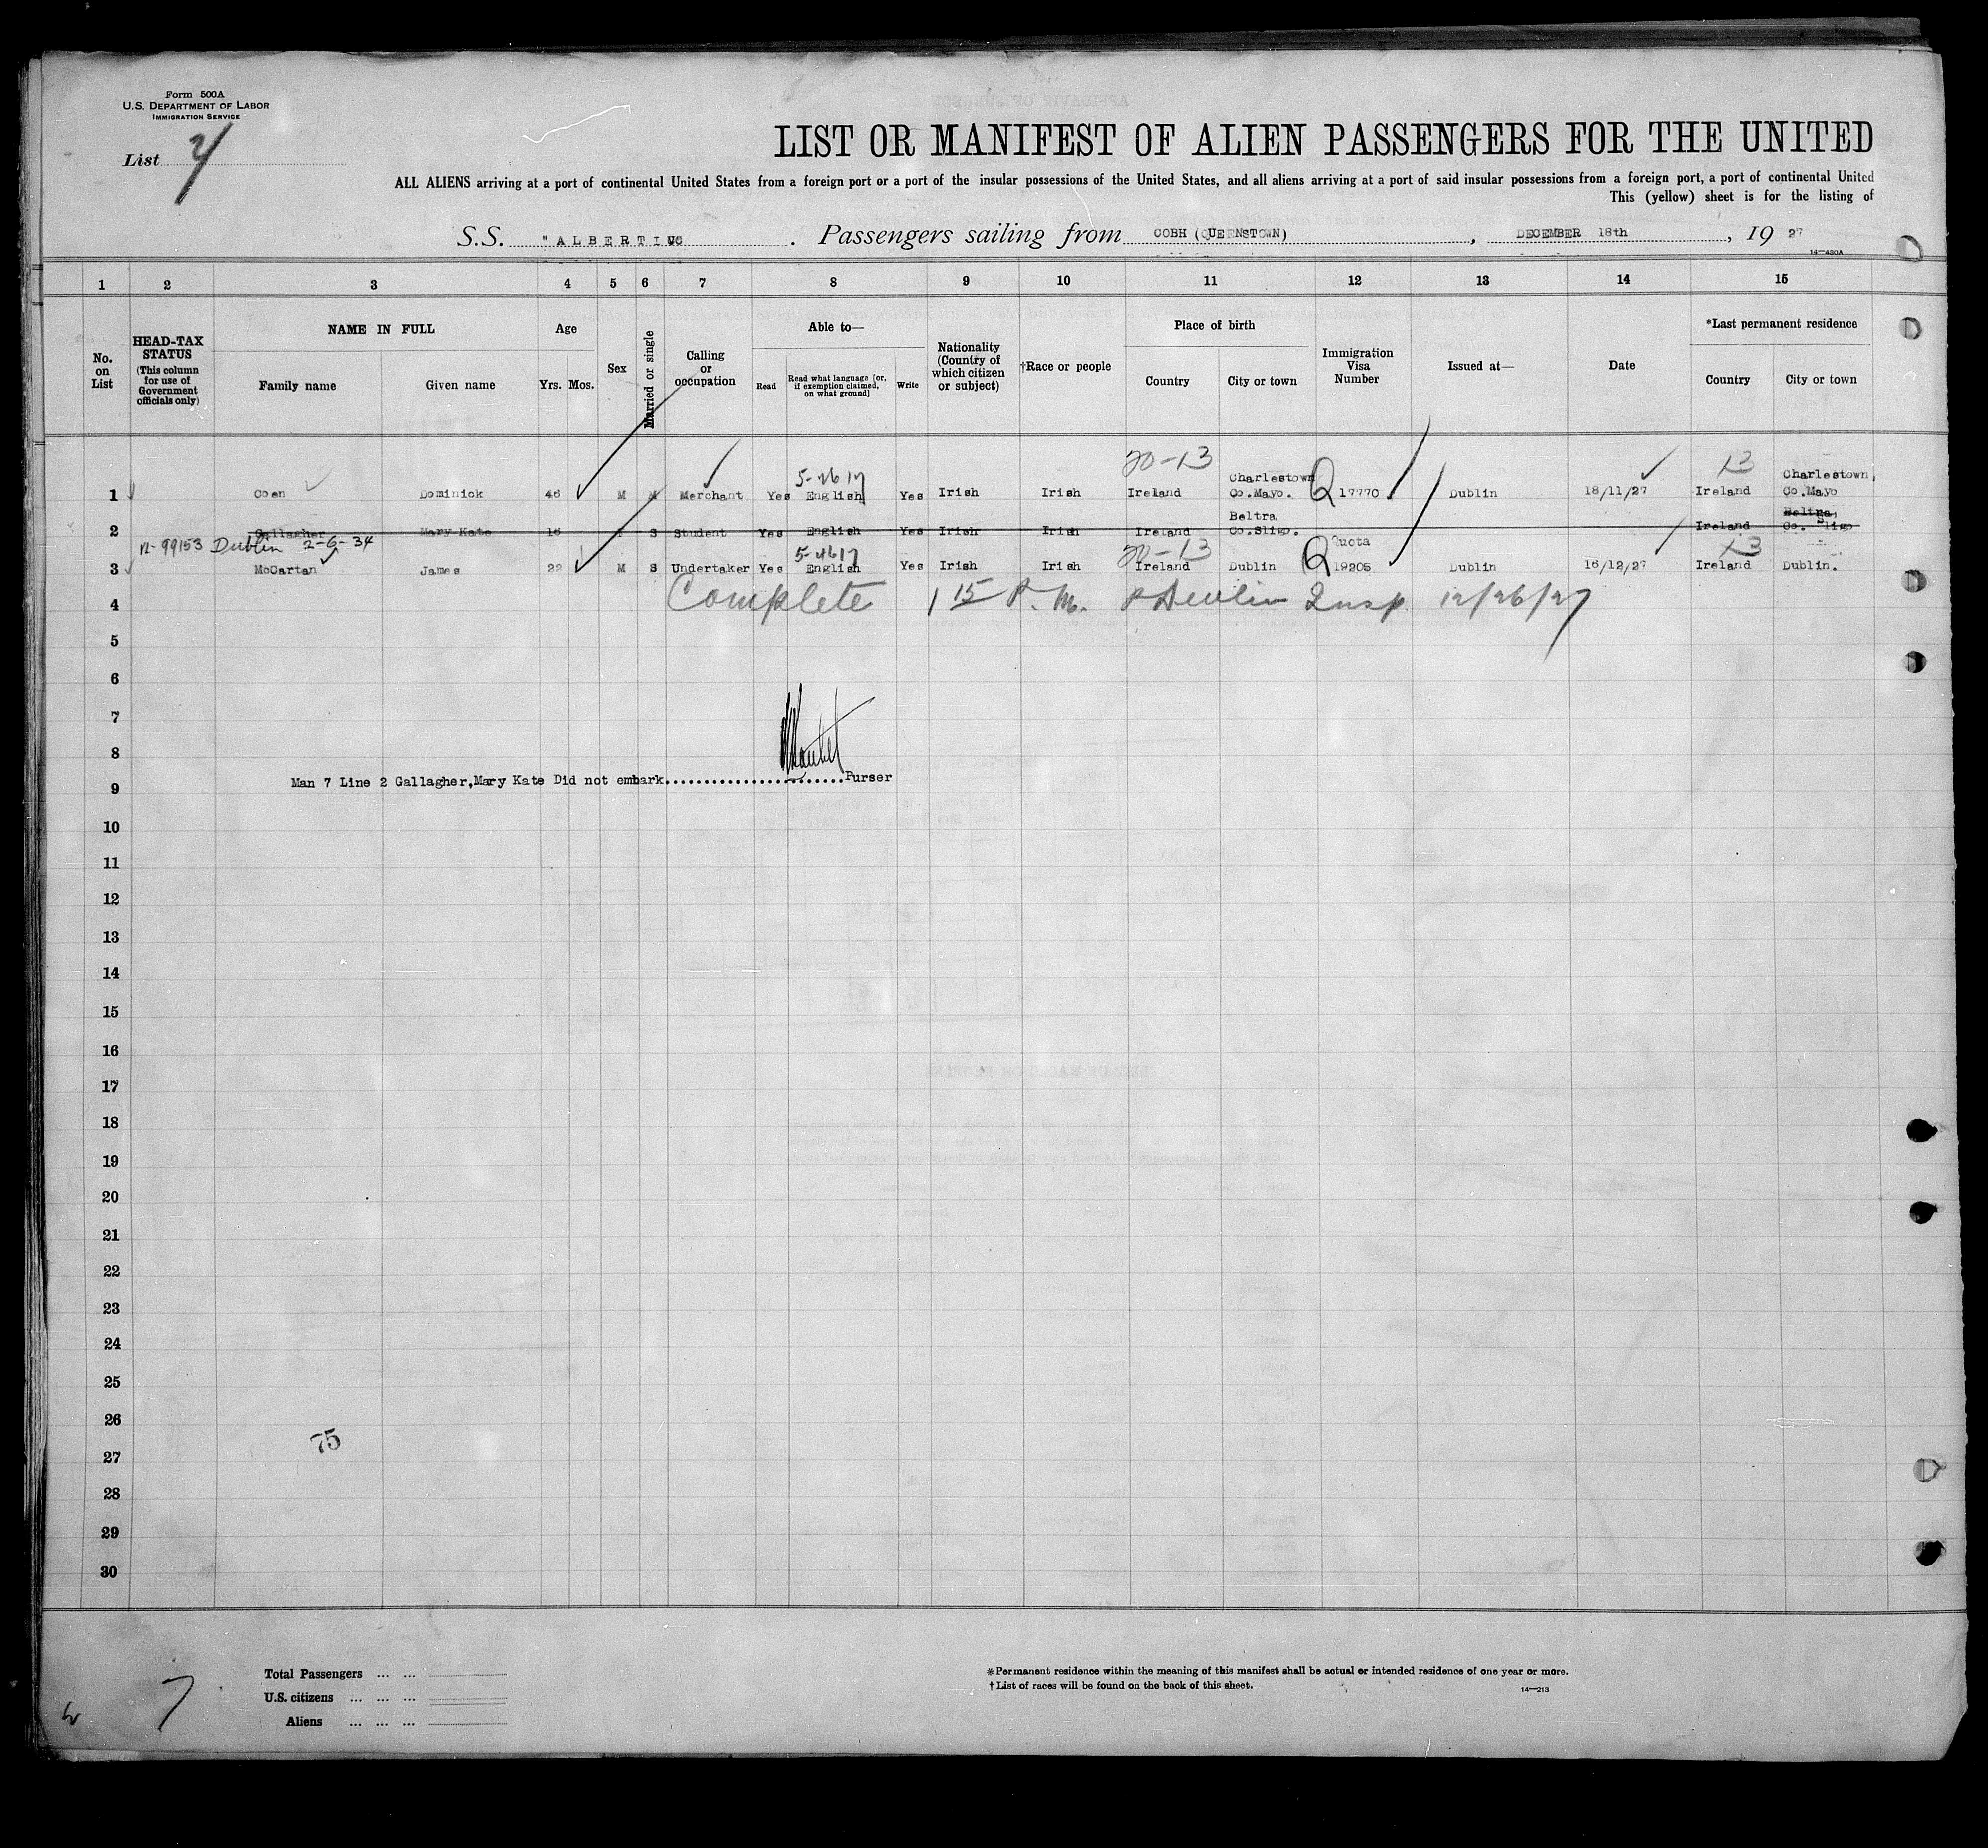 Form 500A
U.S. DEPARTMENT OF LABOR
IMMIGRATION SERVICE
List 7
LIST OR MANIFEST OF ALIEN PASSENGERS FOR THE UNITED
ALL ALIENS arriving at a port of continental United States from a foreign port or a port of the insular possessions of the United States, and all aliens arriving at a port of said insular possessions from a foreign port, a port of continental United
This (yellow) sheet is for the listing of
S.S. "ALBERTIC . Passengers sailing from COBH (QUEENSTOWN) , DECEMBER 18th , 19 27
14—430A
1 2 3 4 5 6 7 8 9 10 11 12 13 14 15
No. on List
HEAD-TAX STATUS (This column for use of Government officials only)
NAME IN FULL
Family name Given name
Age
Yrs. Mos.
Sex
Married or single
Calling or occupation
Able to—
Read Read what language [or, if exemption claimed, on what ground] Write
Nationality (Country of which citizen or subject)
†Race or people
Place of birth
Country City or town
Immigration Visa Number
Issued at—
Date
*Last permanent residence
Country City or town
20-13 13
1 Coen Dominick 46 M M Merchant Yes English Yes Irish Irish Ireland Charlestown Co.Mayo. Q 17770 Dublin 18/11/27 Ireland Charlestown, Co.Mayo
2 Gallagher Mary Kate 16 F S Student Yes English Yes Irish Irish Ireland Beltra Co.Sligo. Ireland Beltra, Co. Sligo
99153 Dublin 2-6-34 20-13 Quota 13
3 McCartan James 22 M S Undertaker Yes English Yes Irish Irish Ireland Dublin Q 19205 Dublin 16/12/27 Ireland Dublin.
4 Complete 1 15 P.M. P Devlin Insp. 12/26/27
5
6
7
8
Man 7 Line 2 Gallagher,Mary Kate Did not embark.......................Purser
9
10
11
12
13
14
15
16
17
18
19
20
21
22
23
24
25
26
75
27
28
29
30
Total Passengers ... ...
U.S. citizens ... ... ...
Aliens ... ... ...
7
*Permanent residence within the meaning of this manifest shall be actual or intended residence of one year or more.
†List of races will be found on the back of this sheet.
14—213